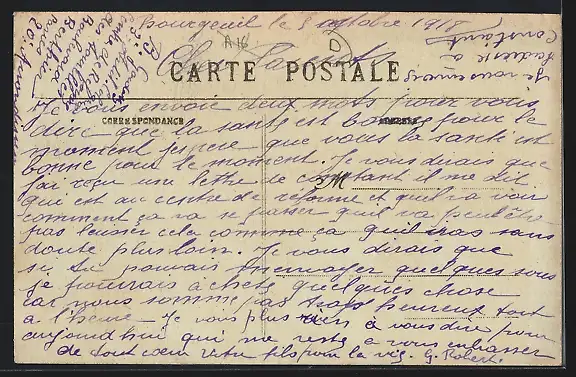 Bourgueil le 3 octobre 1918
A 16
Cher Parents
CARTE POSTALE
CORRESPONDANCE
ADRESSE
M
Je vous envoie deux mots pour vous
dire que la santé est bonne pour le
moment j'espere que vous la santé est
bonne pour le moment. Je vous dirais que
j'ai reçu une lettre de constant il me dit
qui est au centre de réforme et quil va voir
comment ça va se passer quil va peut être
pas laisser cela comme ça quil iras sans
doute plus loin. Je vous dirais que
si tu pouvais menvoyer quelques sous
je pourrais acheté quelques chose
car nous somme pas trop heureux tout
a l'heure. Je vous plus rien à vous dire pour
aujourd'hui qui me reste a vous embrasser
de tout cœur votre fils pour la vie. G. Robert.
Je vous envoie
l'adresse a
Constant
centre
de Réforme
Boulevard